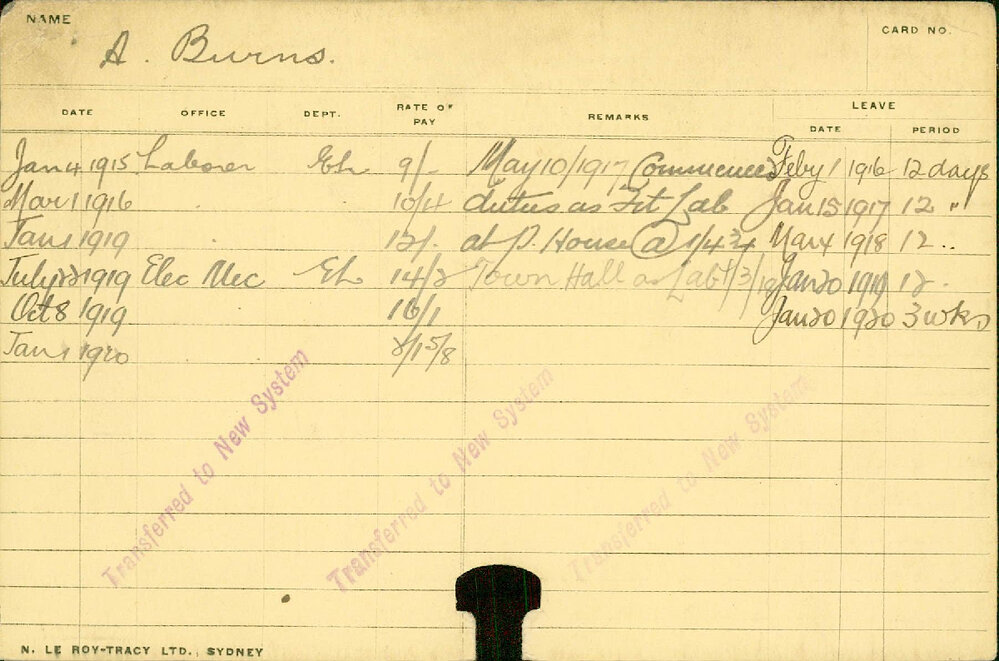 NAME
A. Burns.
CARD NO.
DATE OFFICE DEPT. RATE OF PAY REMARKS LEAVE
DATE PERIOD
Jan 4 1915 Laborer EL 9/- May 10/1917 Commenced Feby 1 1916 12 days
Mar 1 1916 10/4 duties as Lab Jan 15 1917 12 "
Jan 1 1919 12/- at P. House @ 1/4 3/4 Mar 4 1918 12 ..
July 22 1919 Elec Mec EL 14/2 Town Hall as Lab Jan 20 1919 12 .
Oct 8 1919 16/1 Jan 20 1920 3 wks
Jan 1 1920
Transferred to New System
Transferred to New System
Transferred to New System
N. LE ROY-TRACY LTD., SYDNEY